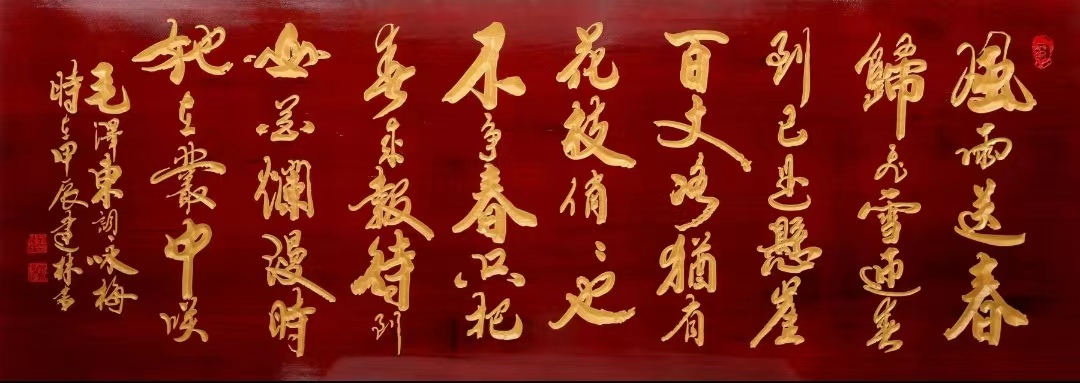 風雨送春
歸飛雪迎春
到已是懸崖
百丈冰猶有
花枝俏〻也
不争春只把
春来報待到
山花爛漫時
她在叢中咲
毛澤東詞咏梅
時在甲辰建林書